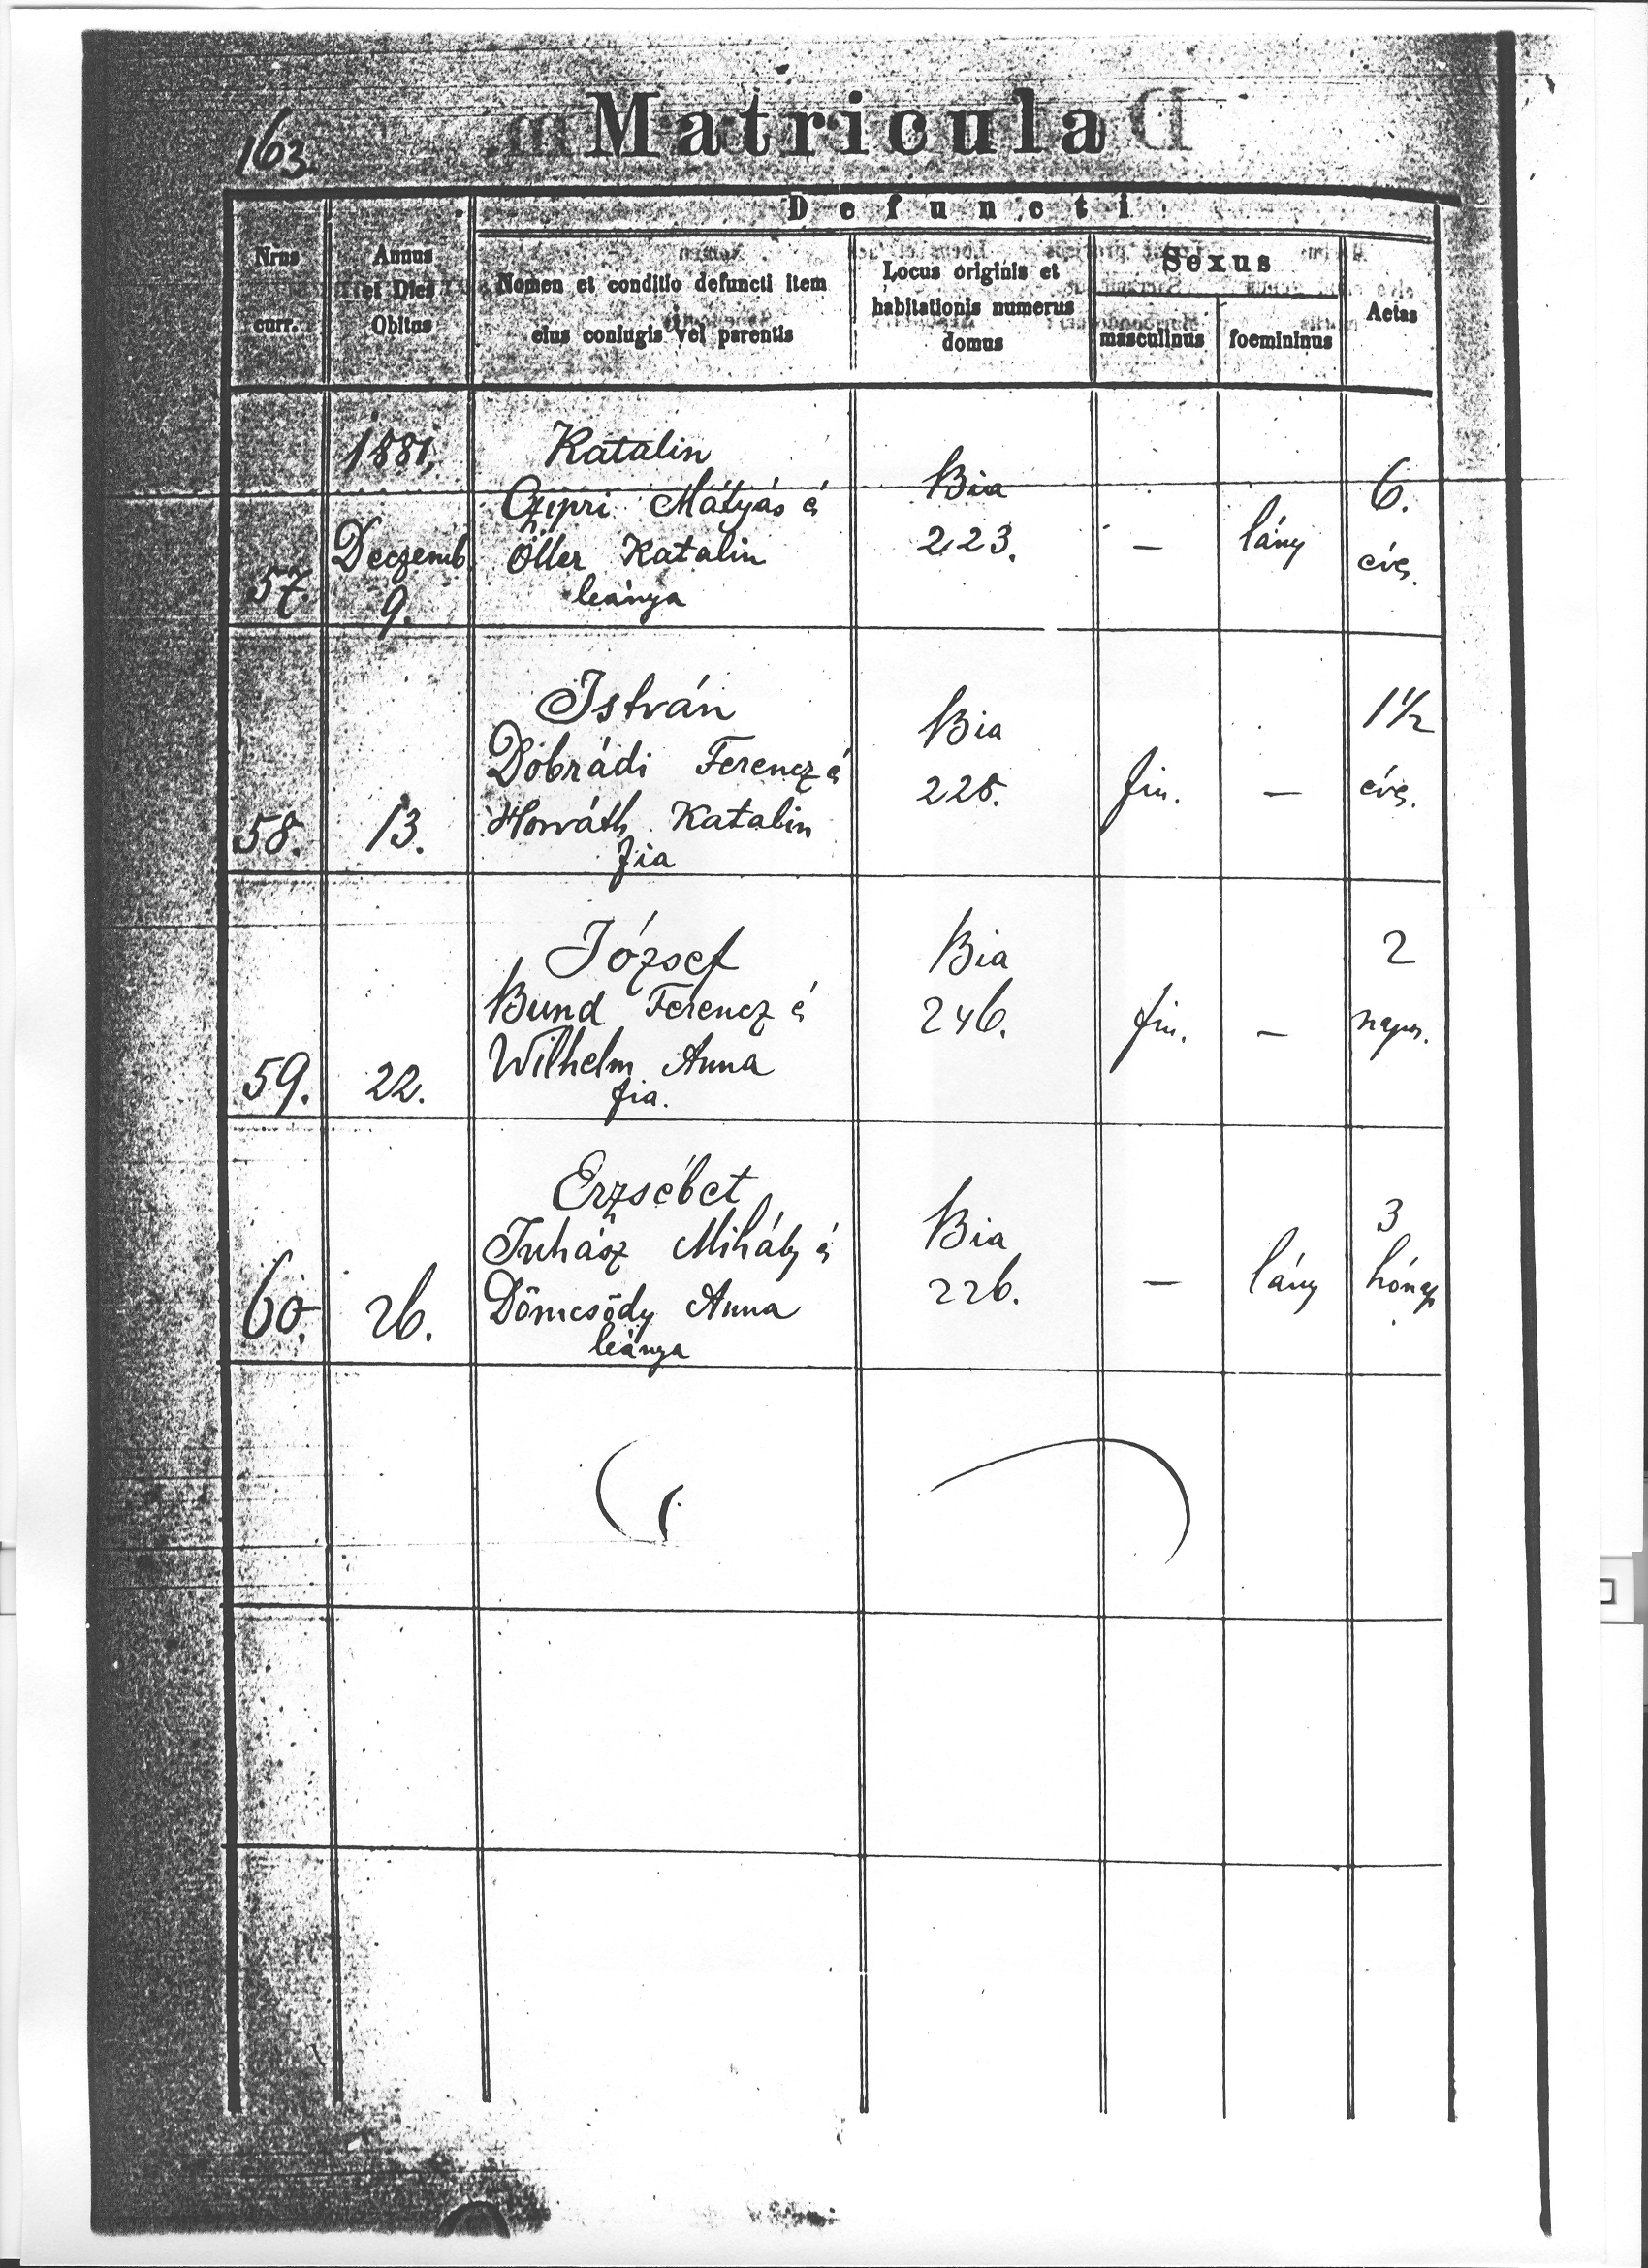 163.
Matricula
Defuncti
Nrus
curr.
Annus
et Dies
Obitus
Nomen et conditio defuncti item
eius coniugis vel parentis
Locus originis et
habitationis numerus
domus
Sexus
masculinus
foemininus
Aetas
57.
1881,
Deczemb
9.
Katalin
Czipri Mátyás é
Öller Katalin
leánya
Bia
223.
–
lány
6.
éves.
58.
13.
István
Dobrádi Ferencz é
Horváth Katalin
fia
Bia
228.
fiu.
–
1½
éves.
59.
22.
József
Bund Ferencz é
Wilhelm Anna
fia.
Bia
246.
fiu.
–
2
napos.
60.
26.
Erzsébet
Juhász Mihály é
Dömcsödy Anna
leánya
Bia
226.
–
lány
3
hónap